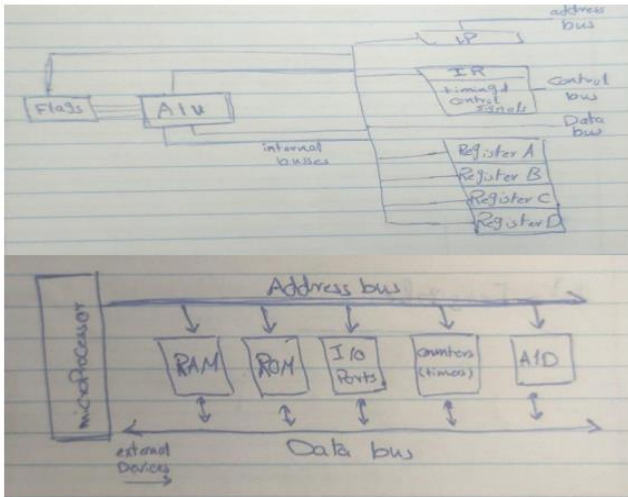 address
bus
IP
IR
timing &
control
signals
control
bus
Flags
Alu
Data
bus
internal
busses
Register A
Register B
Register C
Register D
Address bus
microprocessor
RAM
ROM
I/O
Ports
counters
(timers)
A/D
external
Devices
Data bus